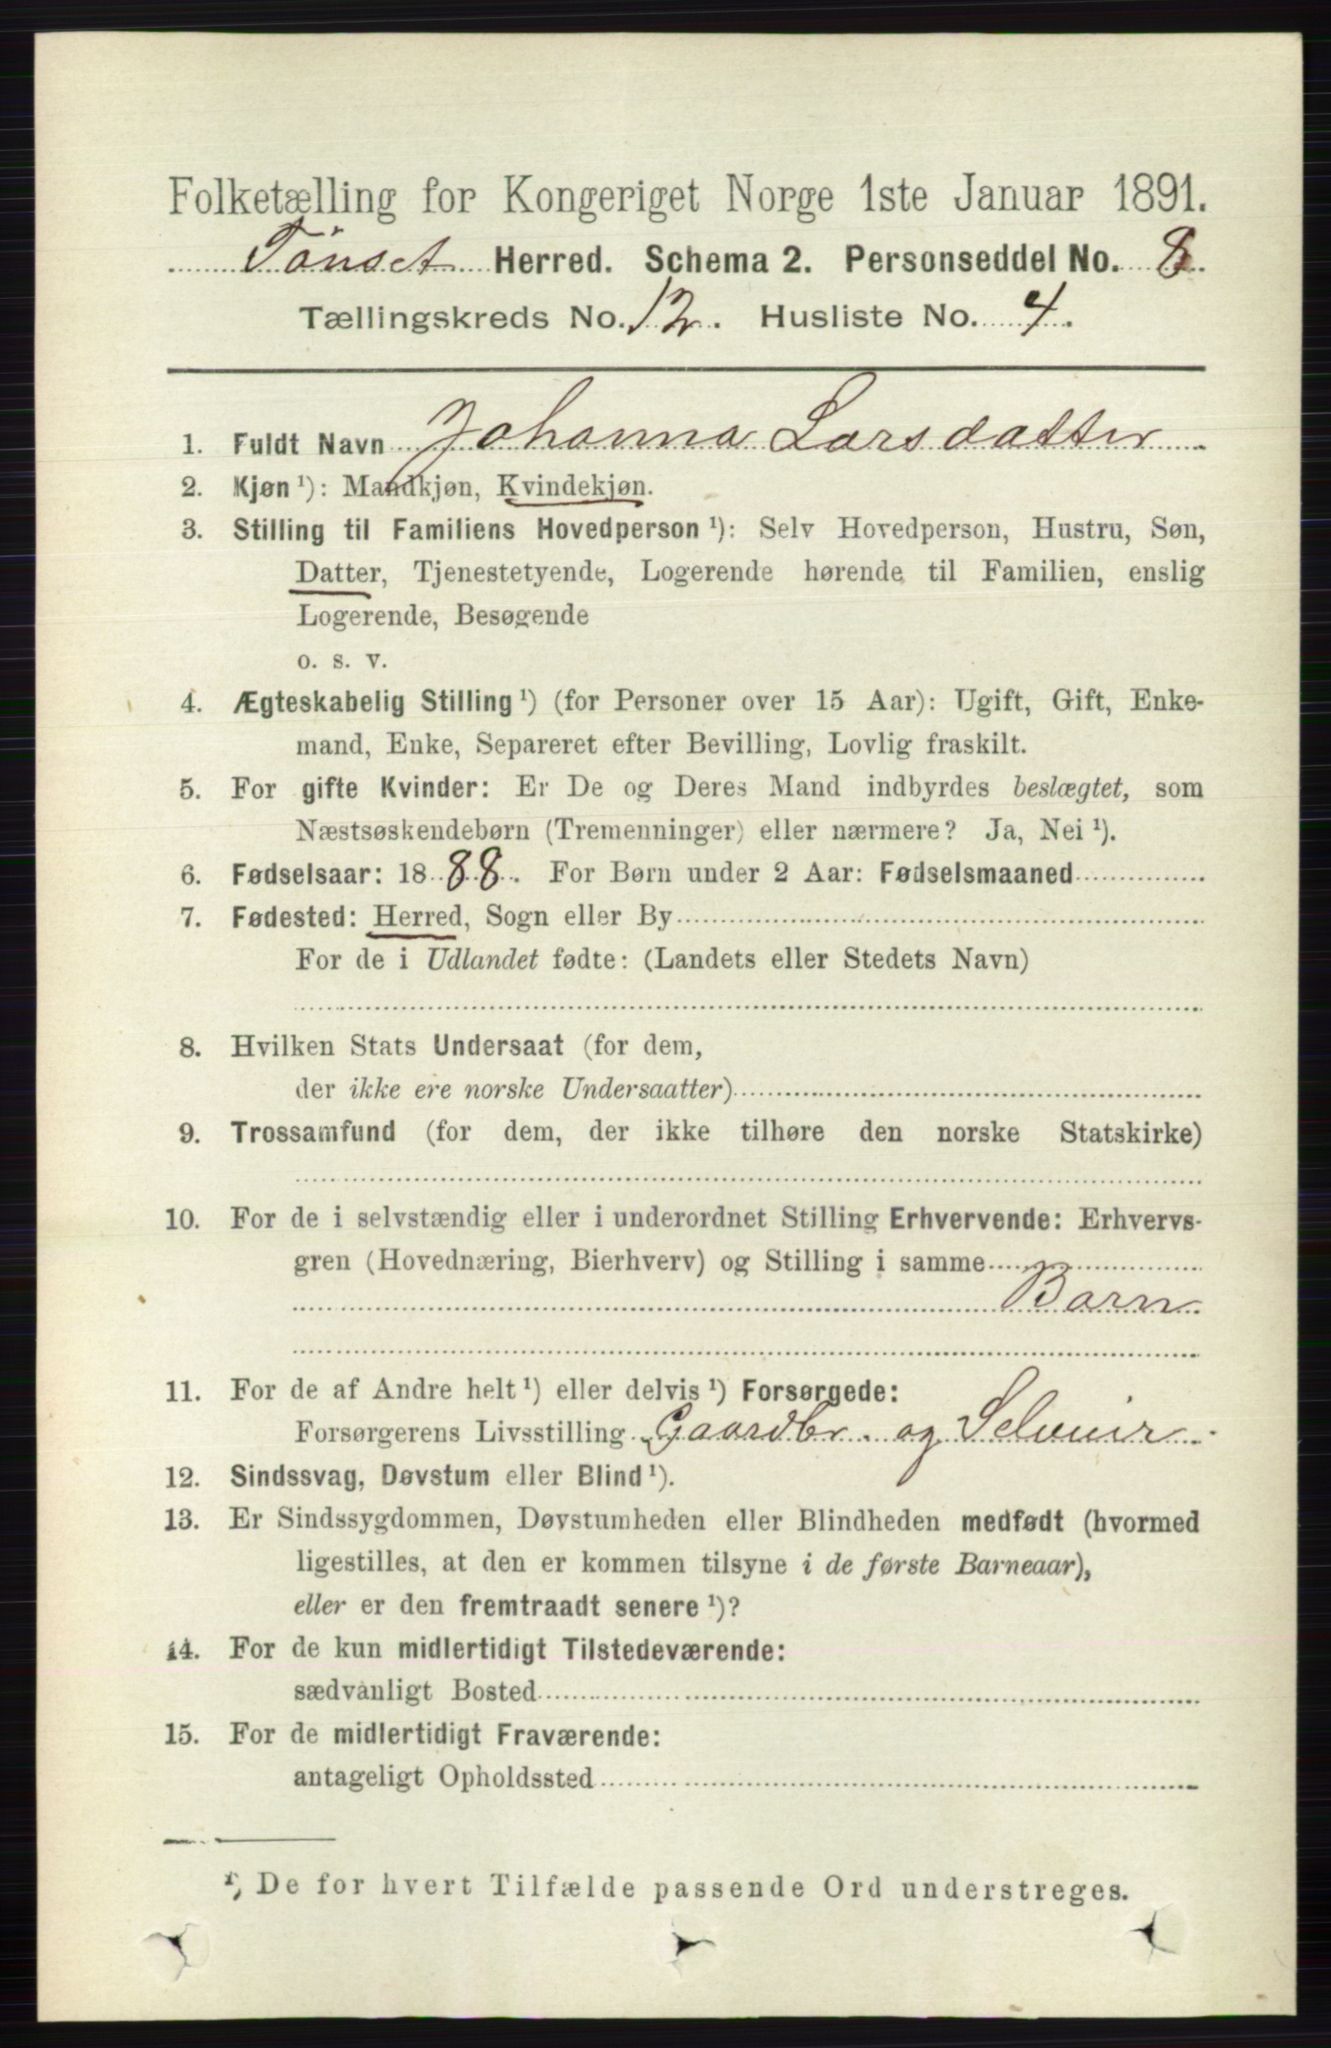 Folketælling for Kongeriget Norge 1ste Januar 1891.
Tönset Herred. Schema 2. Personseddel No. 8.
Tællingskreds No. 12. Husliste No. 4.
1. Fuldt Navn Johanna Larsdatter
2. Kjøn ¹): Mandkjøn, Kvindekjøn.
3. Stilling til Familiens Hovedperson ¹): Selv Hovedperson, Hustru, Søn,
Datter, Tjenestetyende, Logerende hørende til Familien, enslig
Logerende, Besøgende
o. s. v.
4. Ægteskabelig Stilling ¹) (for Personer over 15 Aar): Ugift, Gift, Enke-
mand, Enke, Separeret efter Bevilling, Lovlig fraskilt.
5. For gifte Kvinder: Er De og Deres Mand indbyrdes beslægtet, som
Næstsøskendebørn (Tremenninger) eller nærmere? Ja, Nei ¹).
6. Fødselsaar: 1888. For Børn under 2 Aar: Fødselsmaaned
7. Fødested: Herred, Sogn eller By
For de i Udlandet fødte: (Landets eller Stedets Navn)
8. Hvilken Stats Undersaat (for dem,
der ikke ere norske Undersaatter)
9. Trossamfund (for dem, der ikke tilhøre den norske Statskirke)
10. For de i selvstændig eller i underordnet Stilling Erhvervende: Erhvervs-
gren (Hovednæring, Bierhverv) og Stilling i samme
Barn
11. For de af Andre helt ¹) eller delvis ¹) Forsørgede:
Forsørgerens Livsstilling Gaardbr. og Selveier
12. Sindssvag, Døvstum eller Blind ¹).
13. Er Sindssygdommen, Døvstumheden eller Blindheden medfødt (hvormed
ligestilles, at den er kommen tilsyne i de første Barneaar),
eller er den fremtraadt senere ¹)?
14. For de kun midlertidigt Tilstedeværende:
sædvanligt Bosted
15. For de midlertidigt Fraværende:
antageligt Opholdssted
¹) De for hvert Tilfælde passende Ord understreges.